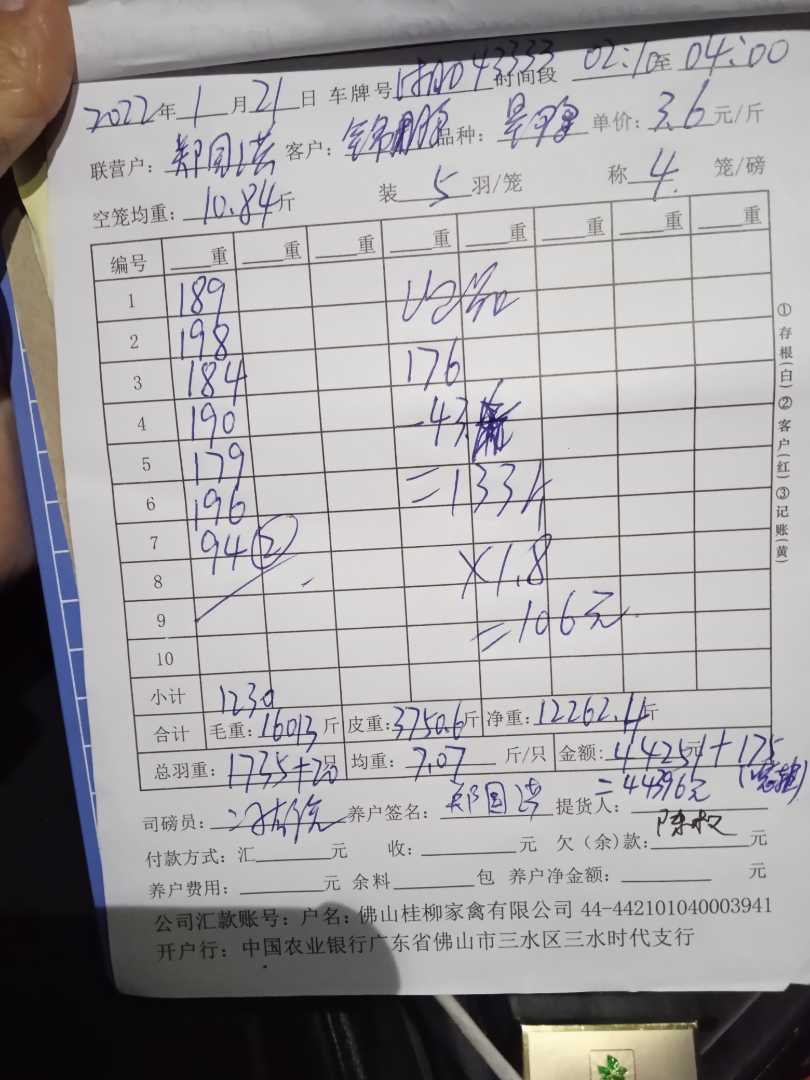 2022年1月21日 车牌号 043333 时间段 02:10至04:00
联营户：郑国洪 客户： 品种： 单价：3.6元/斤
空笼均重：10.84斤 装5羽/笼 称4笼/磅
编号 重 重 重 重 重 重 重 重
1 189
2 198
3 184 176
4 190 -43.
5 179 =133斤
6 196
7 94② ×1.8
8 =106元
9
10
小计 1230
合计 毛重：16013斤 皮重：3750.6斤 净重：12262.4斤
总羽重：1735+20只 均重：7.07斤/只 金额：44251元+175
=44396元
司磅员： 养户签名：郑国洪 提货人：陈权
付款方式：汇 元 收： 元 欠（余）款： 元
养户费用： 元 余料 包 养户净金额： 元
公司汇款账号：户名：佛山桂柳家禽有限公司 44-442101040003941
开户行：中国农业银行广东省佛山市三水区三水时代支行
①存根（白）②客户（红）③记账（黄）